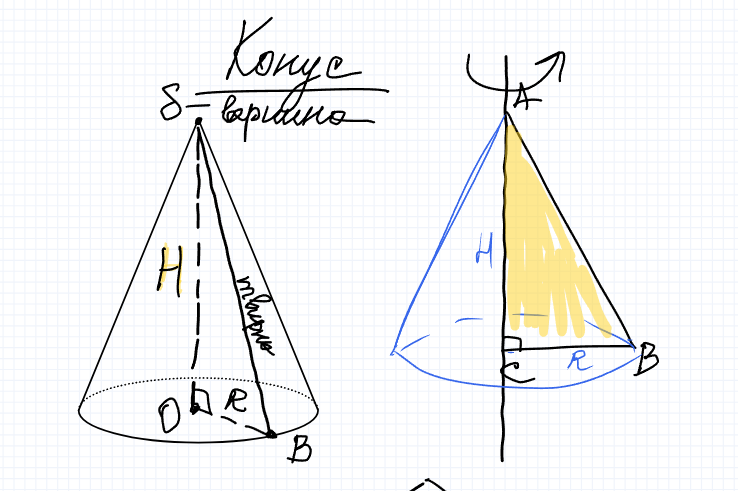 Конус
S — вершина
A
H
H
твірна
O
R
B
C
R
B